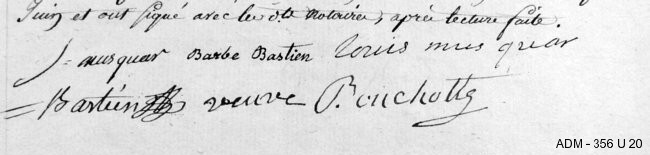 Juin et ont signé avec les dts Notaires, après lecture faite.
J = musquar Barbe Bastien Louis musquar
= Bastien veuve Bouchotte
ADM - 356 U 20